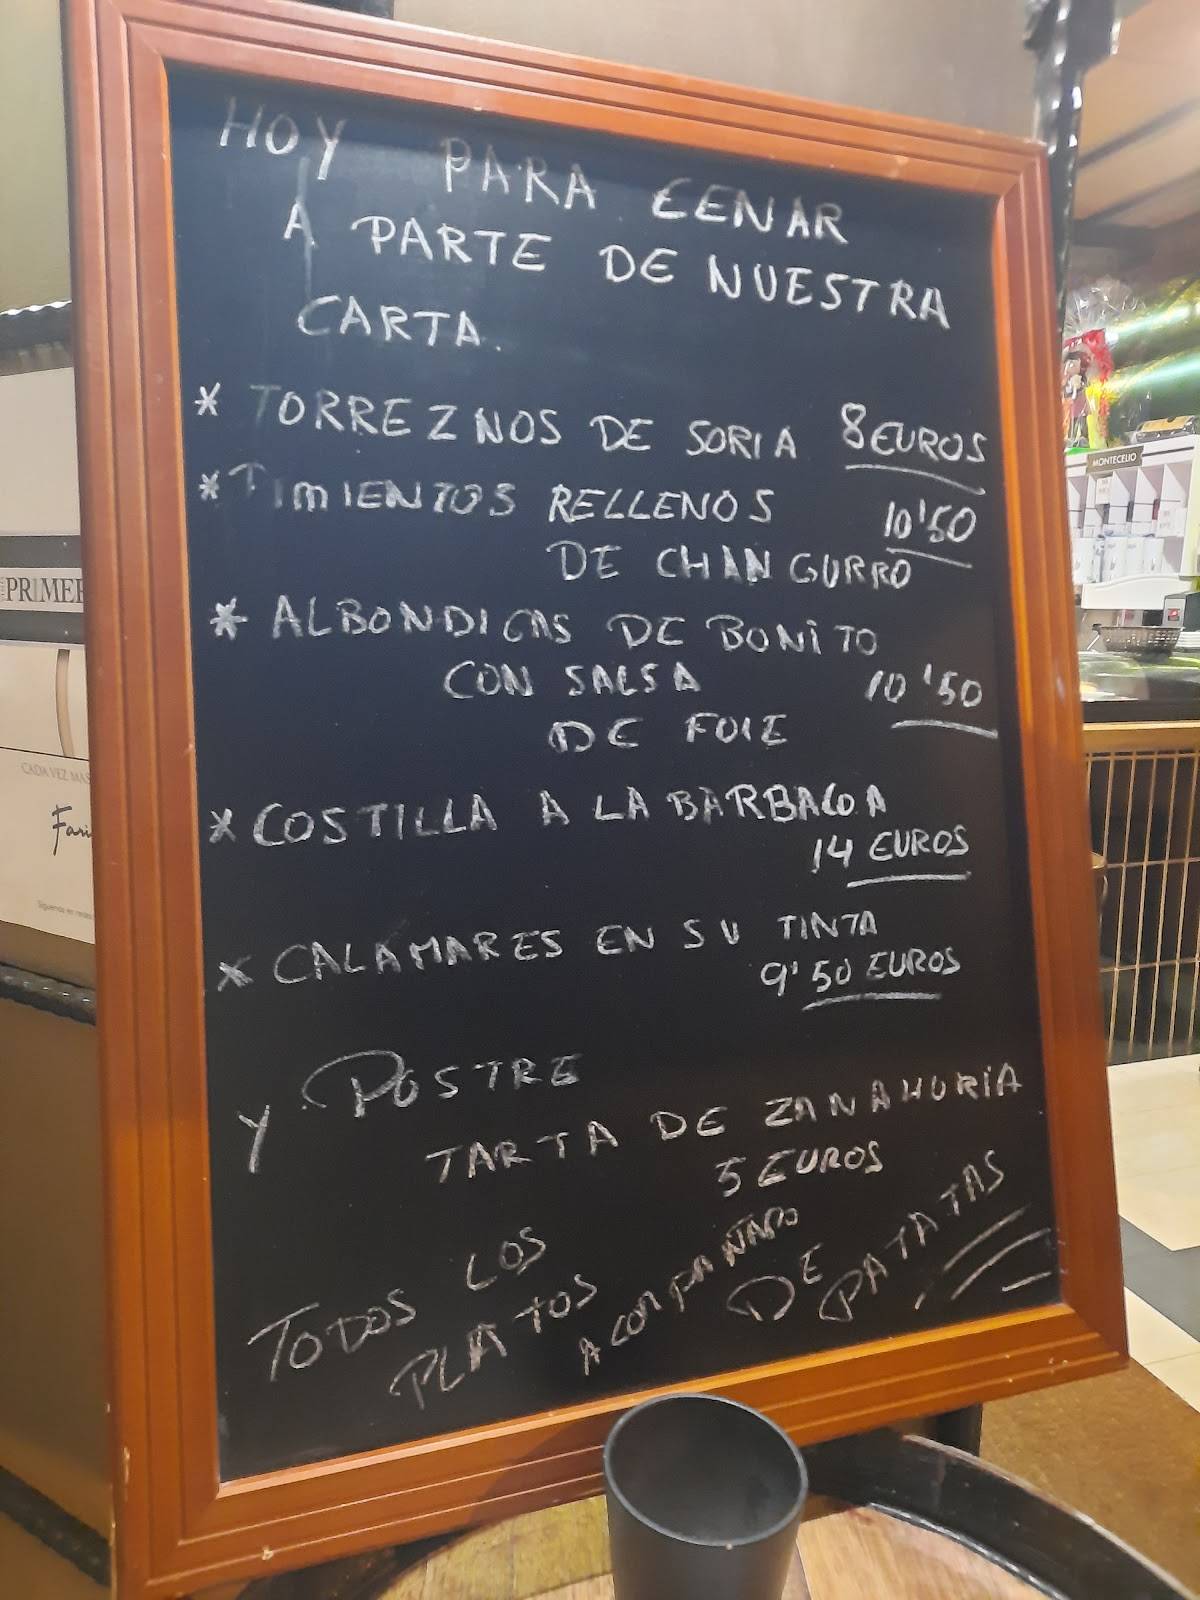 HOY PARA CENAR
A PARTE DE NUESTRA
CARTA.
* TORREZNOS DE SORIA 8 EUROS
* PIMIENTOS RELLENOS 10'50
DE CHANGURRO
* ALBONDIGAS DE BONITO
CON SALSA 10'50
DE FOIE
* COSTILLA A LA BARBACOA
14 EUROS
* CALAMARES EN SU TINTA
9'50 EUROS
Y POSTRE
TARTA DE ZANAHORIA
5 EUROS
TODOS LOS
PLATOS ACOMPAÑADO
DE PATATAS
PRIMER
CADA VEZ MAS
MONTECELIO